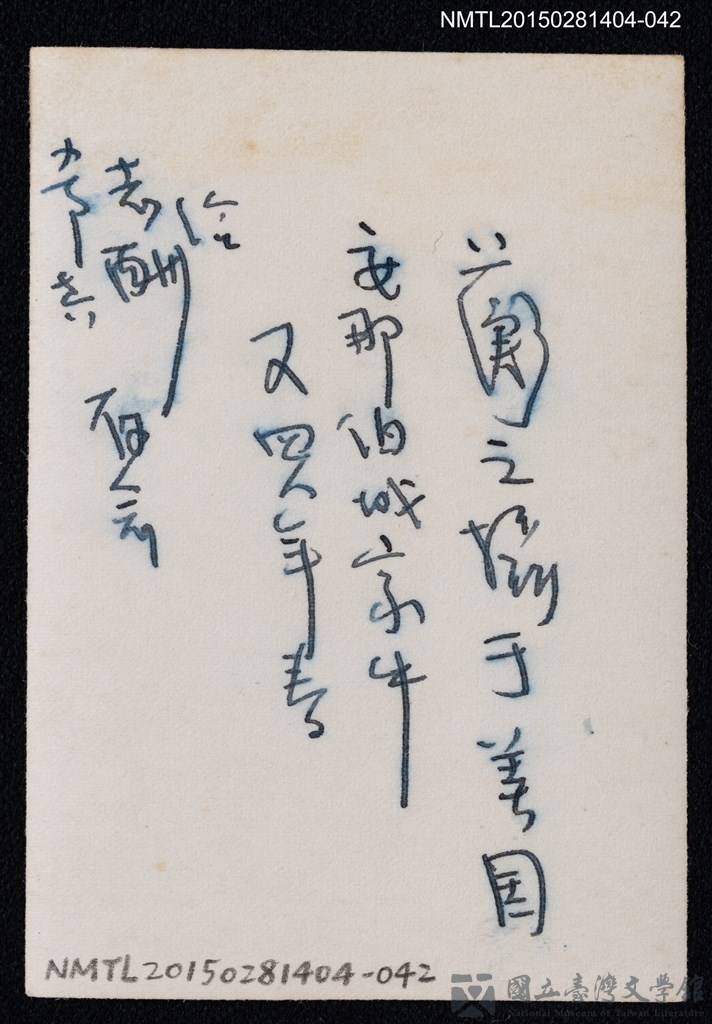 NMTL20150281404-042
之攝于美国
安那伯城家中
四年春
給
志酬
存念
NMTL20150281404-042
國立臺灣文學館
National Museum of Taiwan Literature